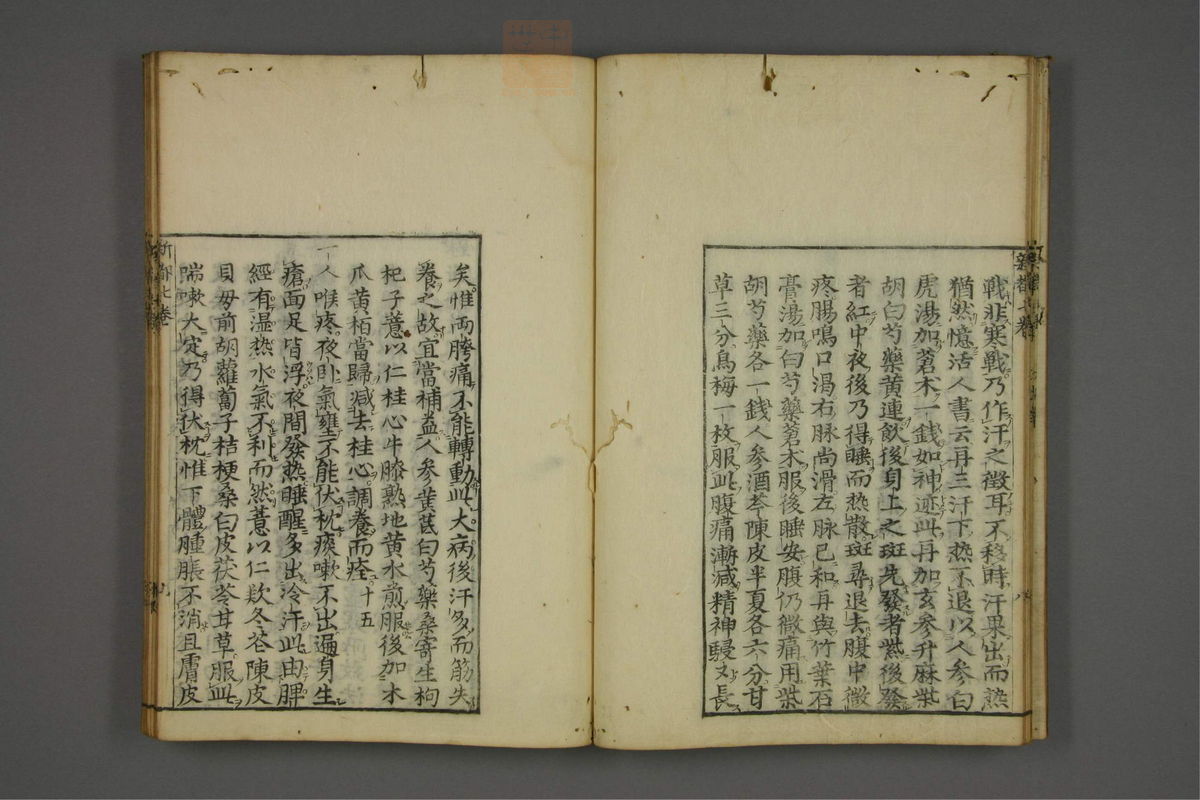 戰非寒戰乃作汗之徵耳不移時汗果出而熱
猶然憶活人書云再三汗下熱不退以人參白
虎湯加蒼朮一錢如神迹此再加玄參升麻柴
胡白芍藥黃連飲後身上之斑先發者紫後發
者紅中夜後乃得睡而熱散斑尋退去腹中微
疼腸鳴口渴右脉尚滑左脉已和再與竹葉石
膏湯加白芍藥蒼朮服後睡安腹仍微痛用柴
胡芍藥各一錢人參酒芩陳皮半夏各六分甘
草三分烏梅一枚服此腹痛漸減精神驟又長
矣惟両胯痛不能轉動此大病後汗多而筋失
養之故宜當補益人參黃芪白芍藥桑寄生枸
杞子薏以仁桂心牛膝熟地黃水煎服後加木
爪黃栢當歸減去桂心調養而痊十五
一人喉疼夜卧氣壅不能伏枕痰嗽不出遍身生
瘡面足皆浮夜間發熱睡醒多出冷汗此由脾
經有湿熱水氣不利而然薏以仁欵冬花陳皮
貝母前胡蘿蔔子桔梗桑白皮茯苓甘草服此
喘嗽大定乃得伏枕惟下體腫脹不消且膚皮